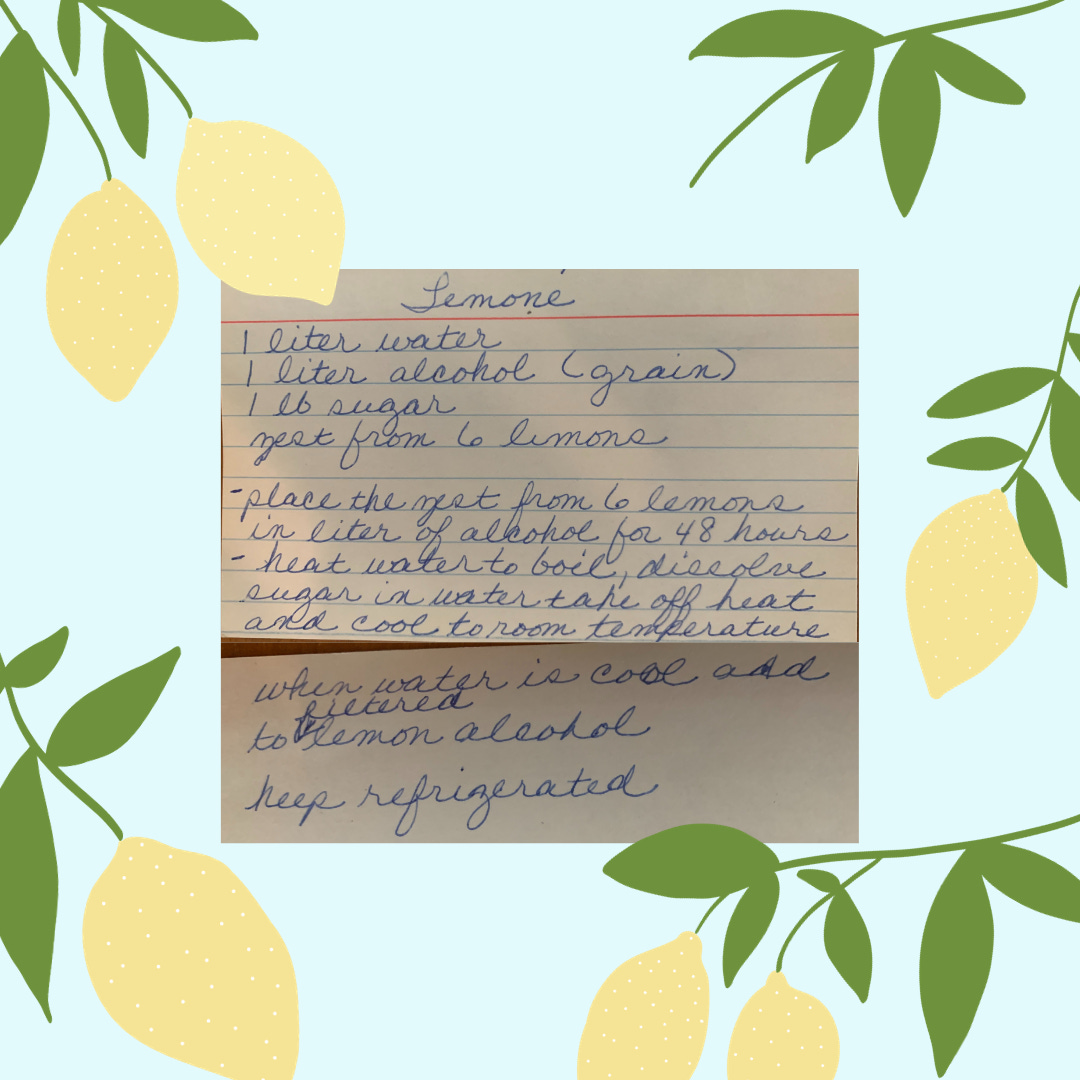 Lemoné
1 liter water
1 liter alcohol (grain)
1 lb sugar
zest from 6 lemons
- place the zest from 6 lemons
in liter of alcohol for 48 hours
- heat water to boil, dissolve
sugar in water take off heat
and cool to room temperature
when water is cool add
filtered
to lemon alcohol
keep refrigerated